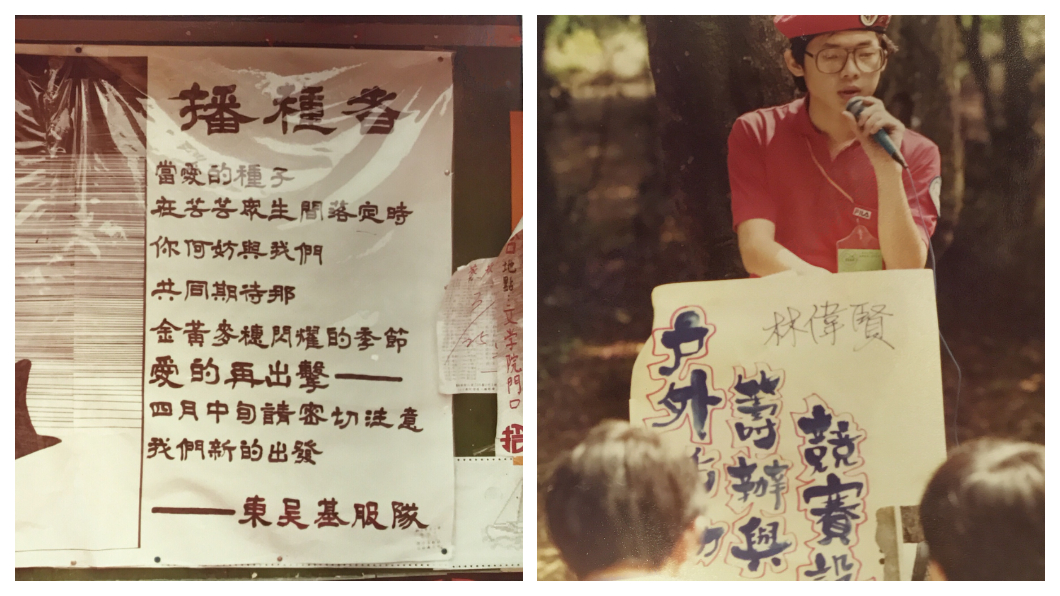 播種者
當愛的種子
在芸芸眾生間落定時
你何妨與我們
共同期待那
金黃麥穗閃耀的季節
愛的再出擊——
四月中旬請密切注意
我們新的出發
——東吳基服隊
地點：文学院門口
林偉賢
戶外
籌辦與
競賽設